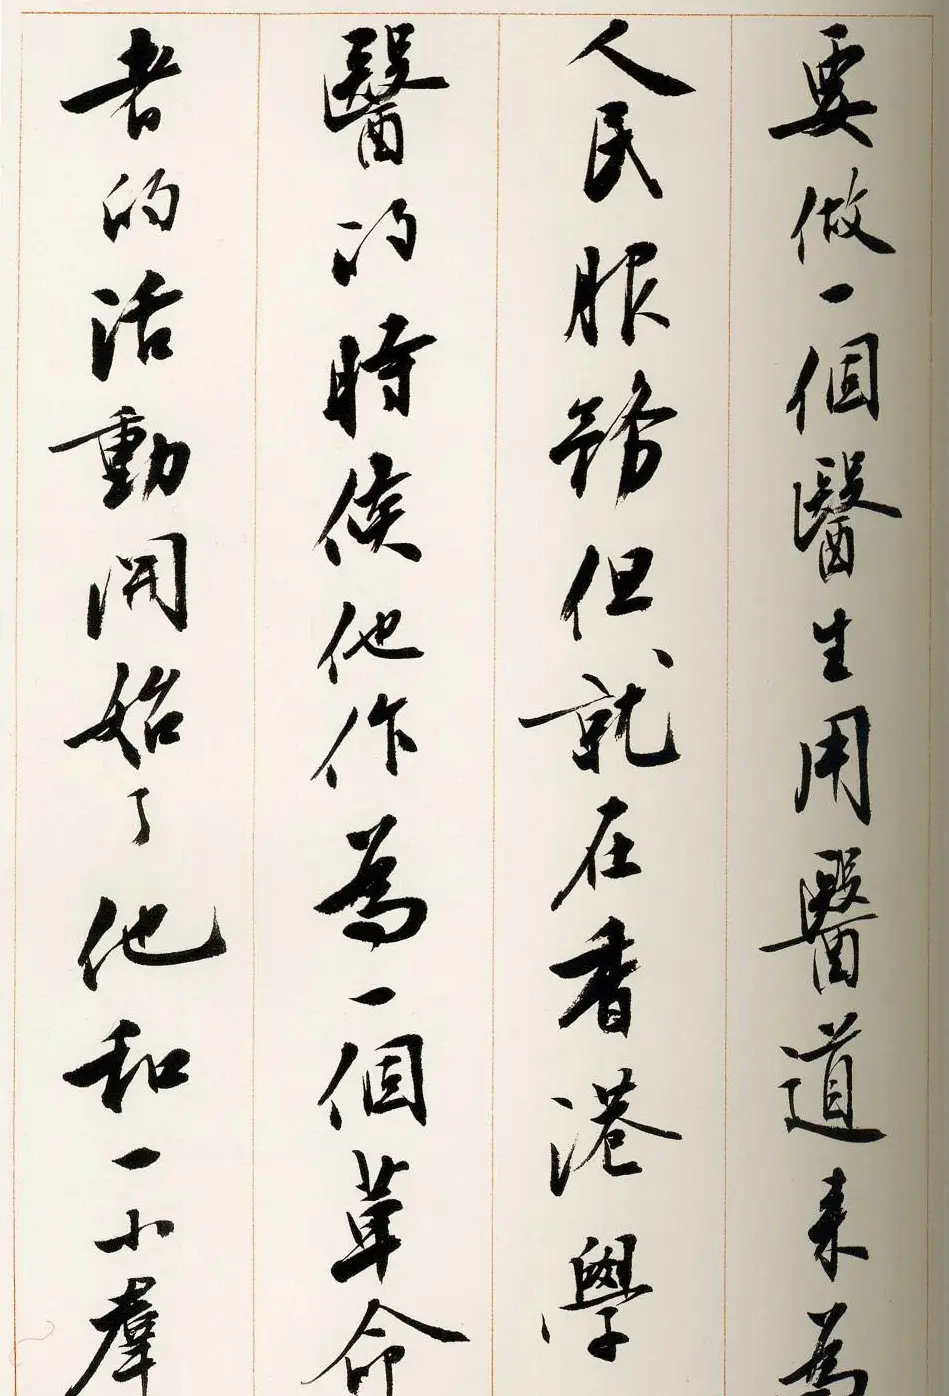 要做一個醫生用醫道来為
人民服務但就在香港學
醫的時候他作為一個革命
者的活動開始了他和一小羣